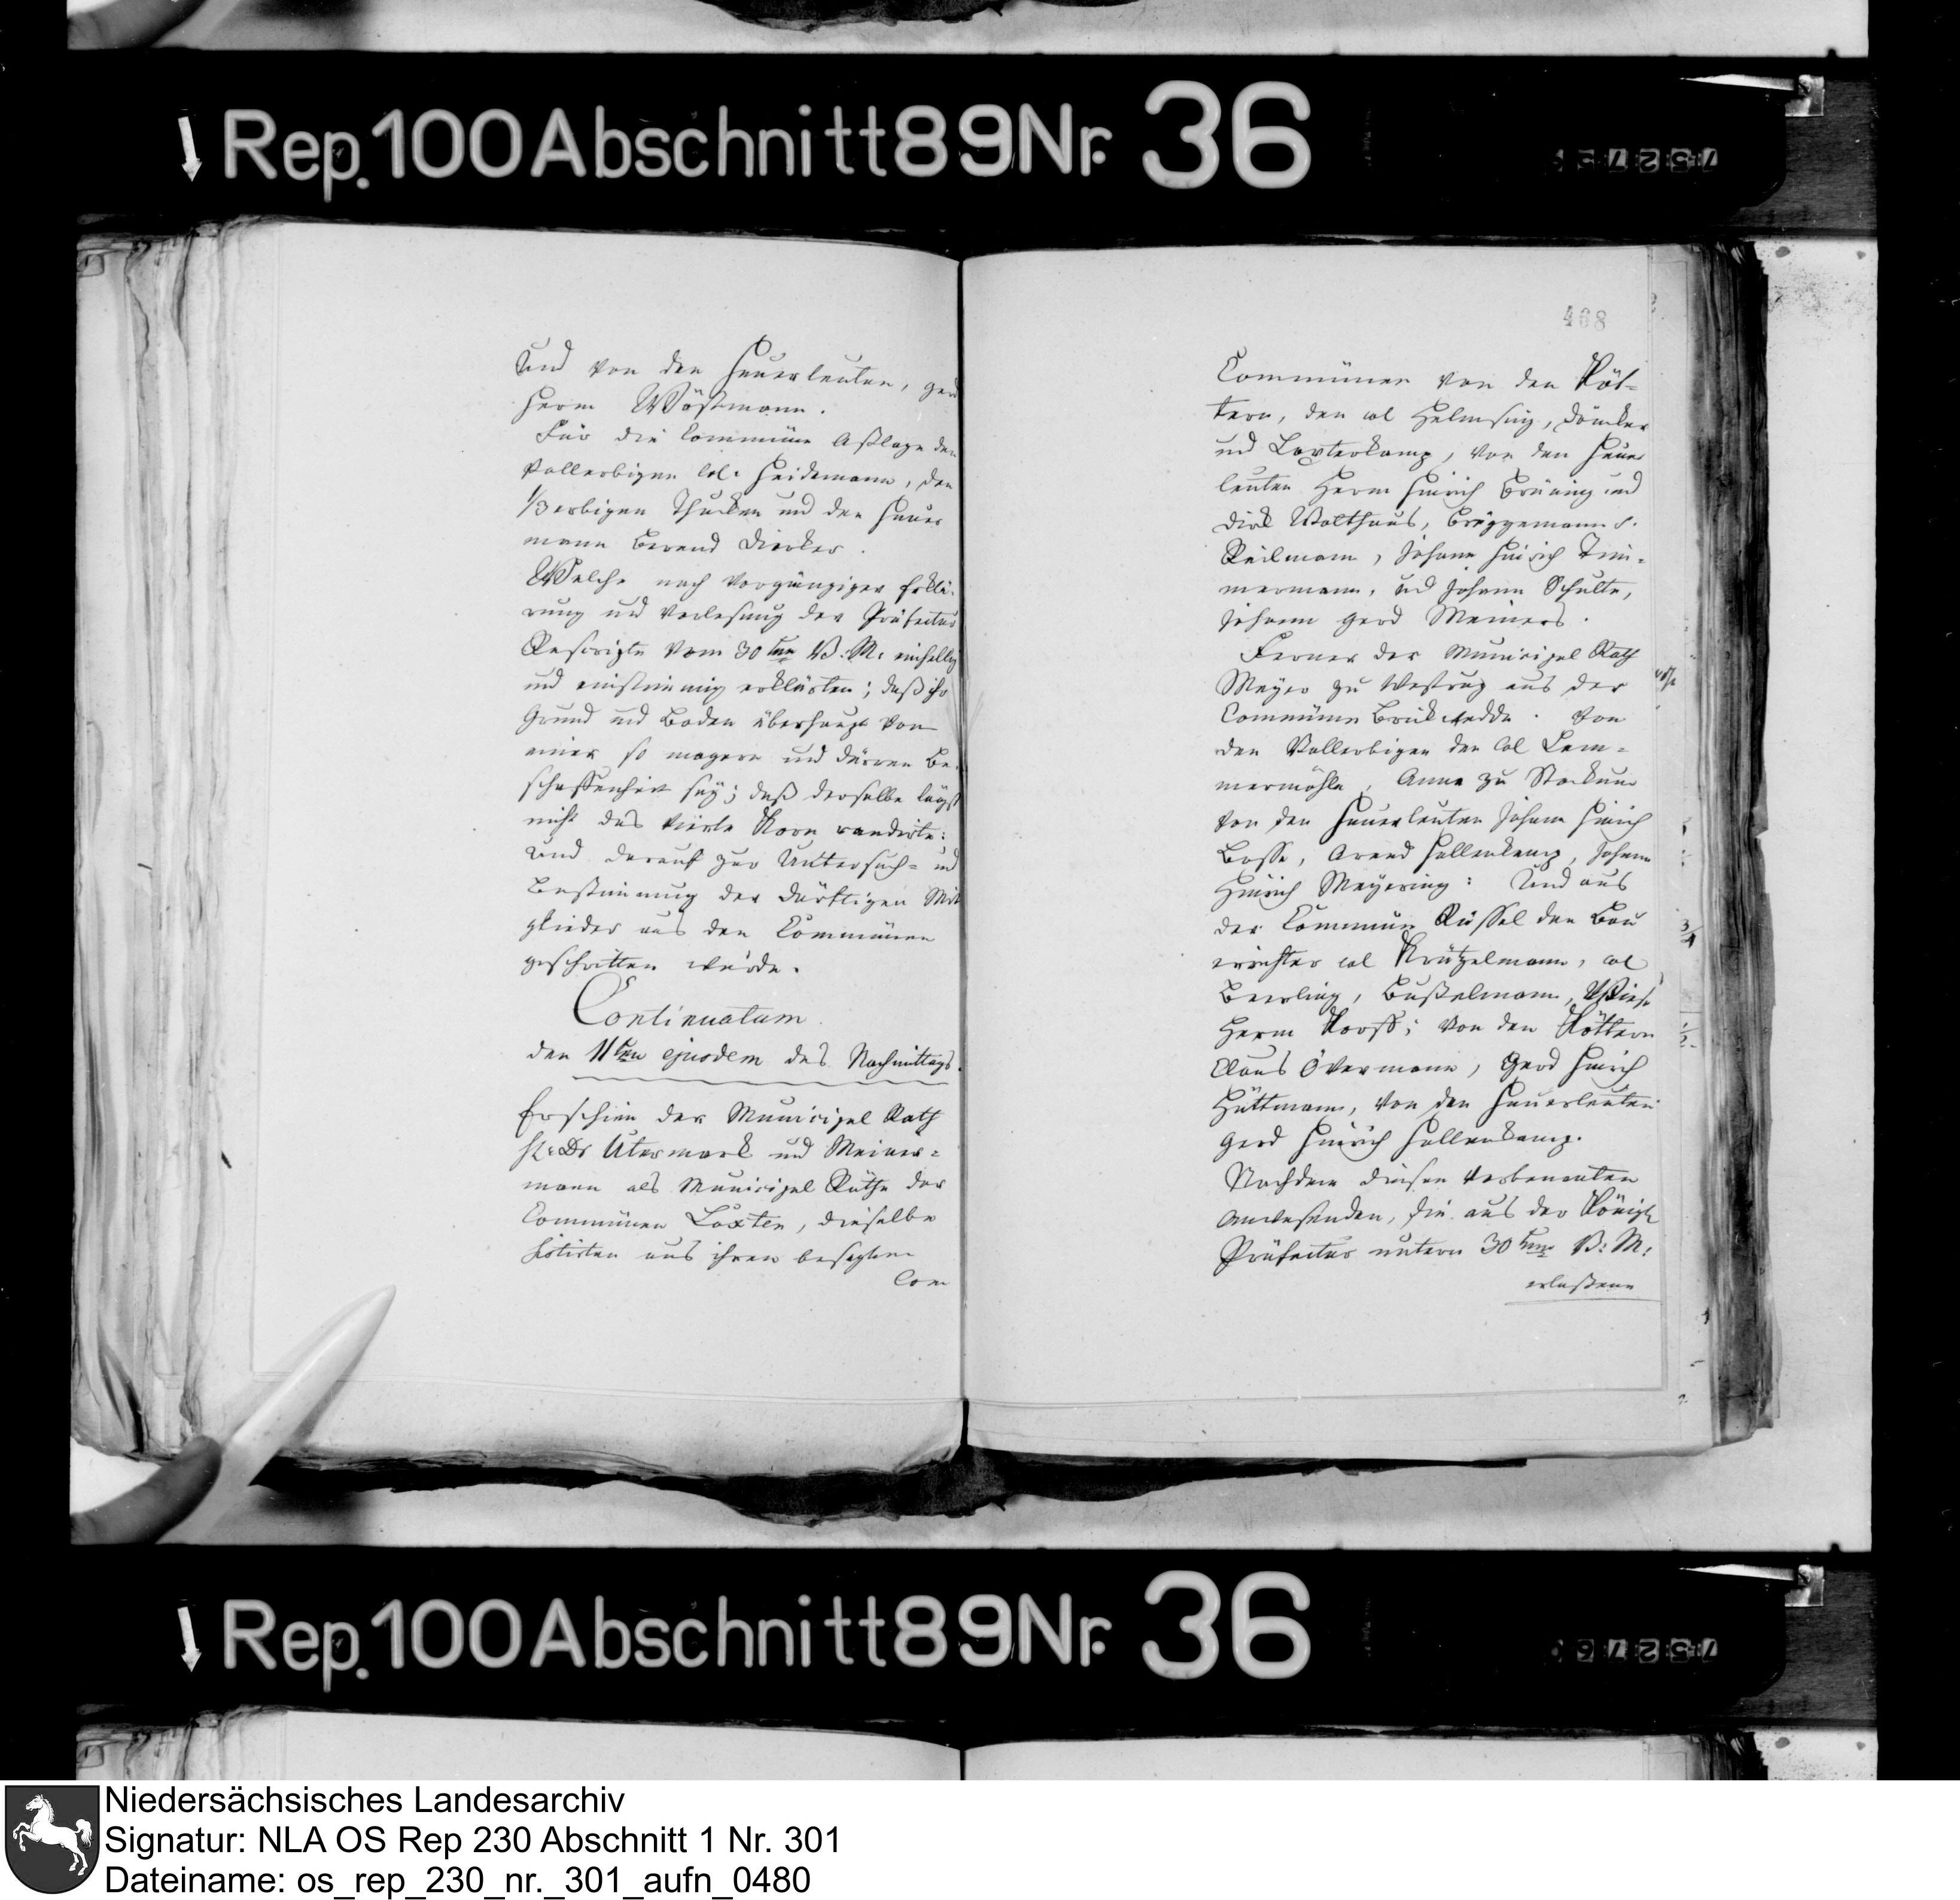 Rep. 100 Abschnitt 89 Nr. 36
und von den Heuerleuten, Gerd
Herm Wöstmann.
Für die Commüne Aßlage den
Vollerbigen Col. Heidemann, den
1/3 erbigen Thuken und den Heuer
mann Berend Dierker.
Welche nach vorgängiger Erklä-
rung und Verlesung der Präfectur
Rescripte vom 30ten V: M: einhellig
und einstimmig erklärten; daß ihr
Grund und Boden überhaupt von
einer so magern und dürren Be-
schaffenheit sey; daß derselbe längst
nicht das vierte Korn rendirte:
und darauf zur Untersuch- und
Bestimmung der dürftigen Mit
glieder aus den Commünen
geschritten würde.
Continuatum
den 11ten ejusdem des Nachmittags.
Erschien der Municipal Rath
H: Dr Utermark und Meiner=
mann als Municipal Räthe der
Commünen Loxten, dieselbe
listirten aus ihren besagten
Com
468
Commünen von den Köt-
tern, den Col Helmsing, Dömker
und Loxterkamp, von den Heuer
leuten Herm Hinrich Brüning und
Dirk Wolthaus, Brüggemann s.
Keilmann, Johann Hinrich Tim-
mermann, und Johann Schulte,
Johann Gerd Meiners.
Ferner der Municipal Rath
Meyer zu Westrup aus der
Commüne Bruickedde. Von
den Vollerbigen den Col Lem-
mermöhle, Anne zu Stockum
von den Heuerleuten Johann Hinrich
Bosse, Arend Hallenkamp, Johann
Hinrich Meyering: Und aus
der Commüne Rüssel den Bau
errichter Col Krützelmann, Col
Beerling, Bußelmann, Wiese
Herm Kooß; von den Köttern
Claus Övermann, Gerd Hinrich
Hüttmann, von den Heuerleuten
Gerd Hinrich Hallenkamp.
Nachdem diesen vorbenanten
Anwesenden, die aus der Königl
Präfectur unterm 30ten V: M:
erlaßene
Rep. 100 Abschnitt 89 Nr. 36
Niedersächsisches Landesarchiv
Signatur: NLA OS Rep 230 Abschnitt 1 Nr. 301
Dateiname: os_rep_230_nr._301_aufn_0480